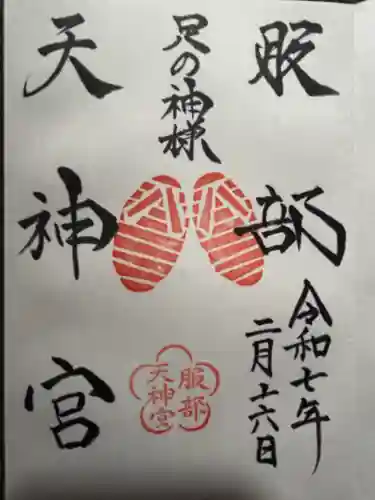 服部
足の神様
天神宮
令和七年
二月十六日
服部
天神宮